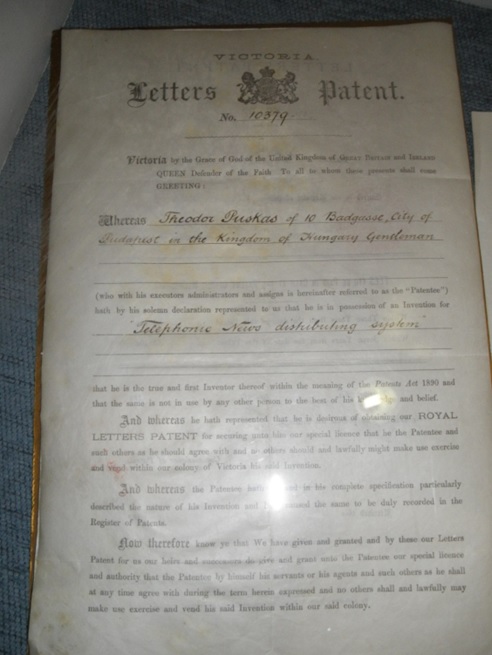 VICTORIA
Letters Patent.
No. 10379
Victoria by the Grace of God of the United Kingdom of GREAT BRITAIN and IRELAND
QUEEN Defender of the Faith To all to whom these presents shall come
GREETING:
Whereas Theodor Puskas of 10 Badgasse, City of
Budapest in the Kingdom of Hungary Gentleman
(who with his executors administrators and assigns is hereinafter referred to as the "Patentee")
hath by his solemn declaration represented to us that he is in possession of an Invention for
Telephonic News distributing system
that he is the true and first Inventor thereof within the meaning of the Patents Act 1890 and
that the same is not in use by any other person to the best of his and belief.
And whereas he hath represented that he is desirous of obtaining our ROYAL
LETTERS PATENT for securing unto him our special licence that he the Patentee and
such others as he should agree with and no others should and lawfully might make use exercise
and vend within our colony of Victoria his said Invention.
And whereas the Patentee in his complete specification particularly
described the nature of his Invention and the same to be duly recorded in the
Register of Patents.
Now therefore know ye that We have given and granted and by these our Letters
Patent for us our heirs and successors do give and grant unto the Patentee our special licence
and authority that the Patentee by himself his servants or his agents and such others as he shall
at any time agree with during the term herein expressed and no others shall and lawfully may
make use exercise and vend his said Invention within our said colony.